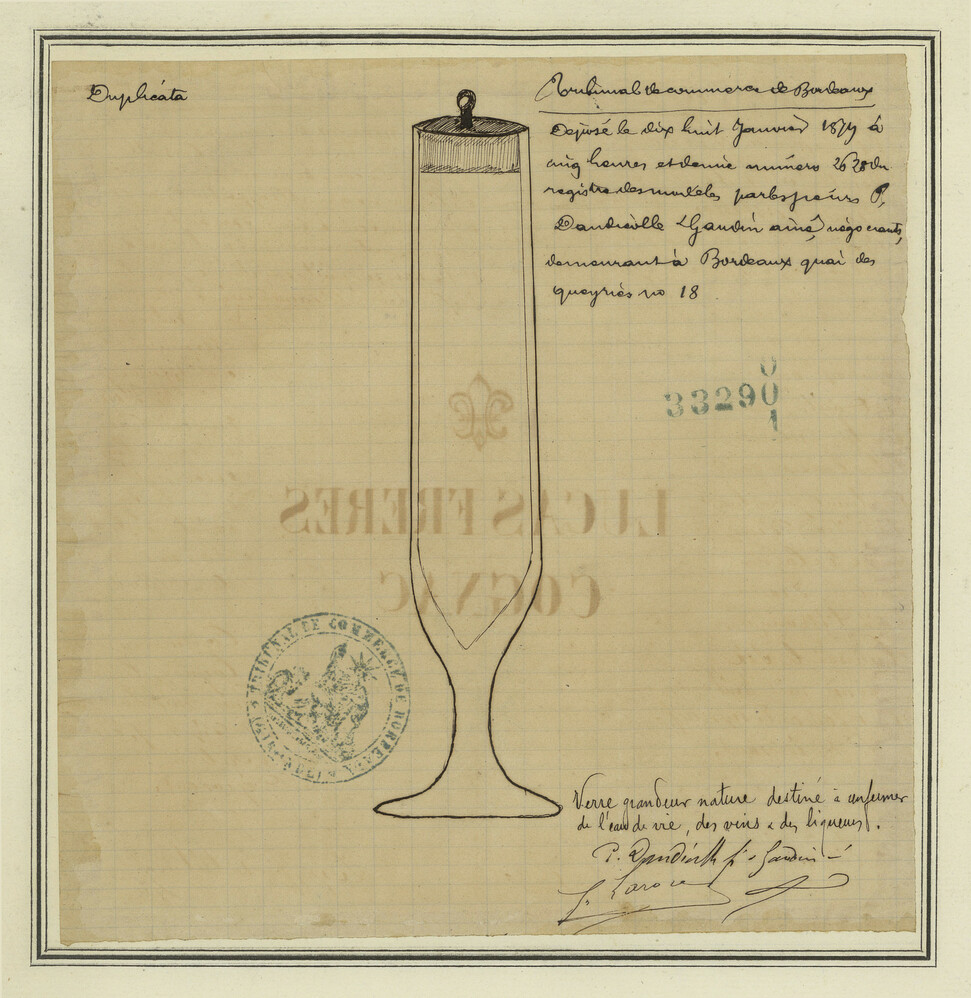 Duplicata
Tribunal de commerce de Bordeaux
Déposé le dix huit Janvier 1879 à
cinq heures et demie numéro 2628 du
registre des modèles par les sieurs P.
Dandicolle & Gaudin ainé, négociants,
demeurant à Bordeaux quai des
queyries no 18
33290
0
1
LUCAS FRERES
COGNAC
TRIBUNAL DE COMMERCE DE BORDEAUX
(GIRONDE)
Verre grandeur nature destiné à enfermer
de l'eau de vie, des vins & des liqueurs.
P. Dandicolle & Gaudin